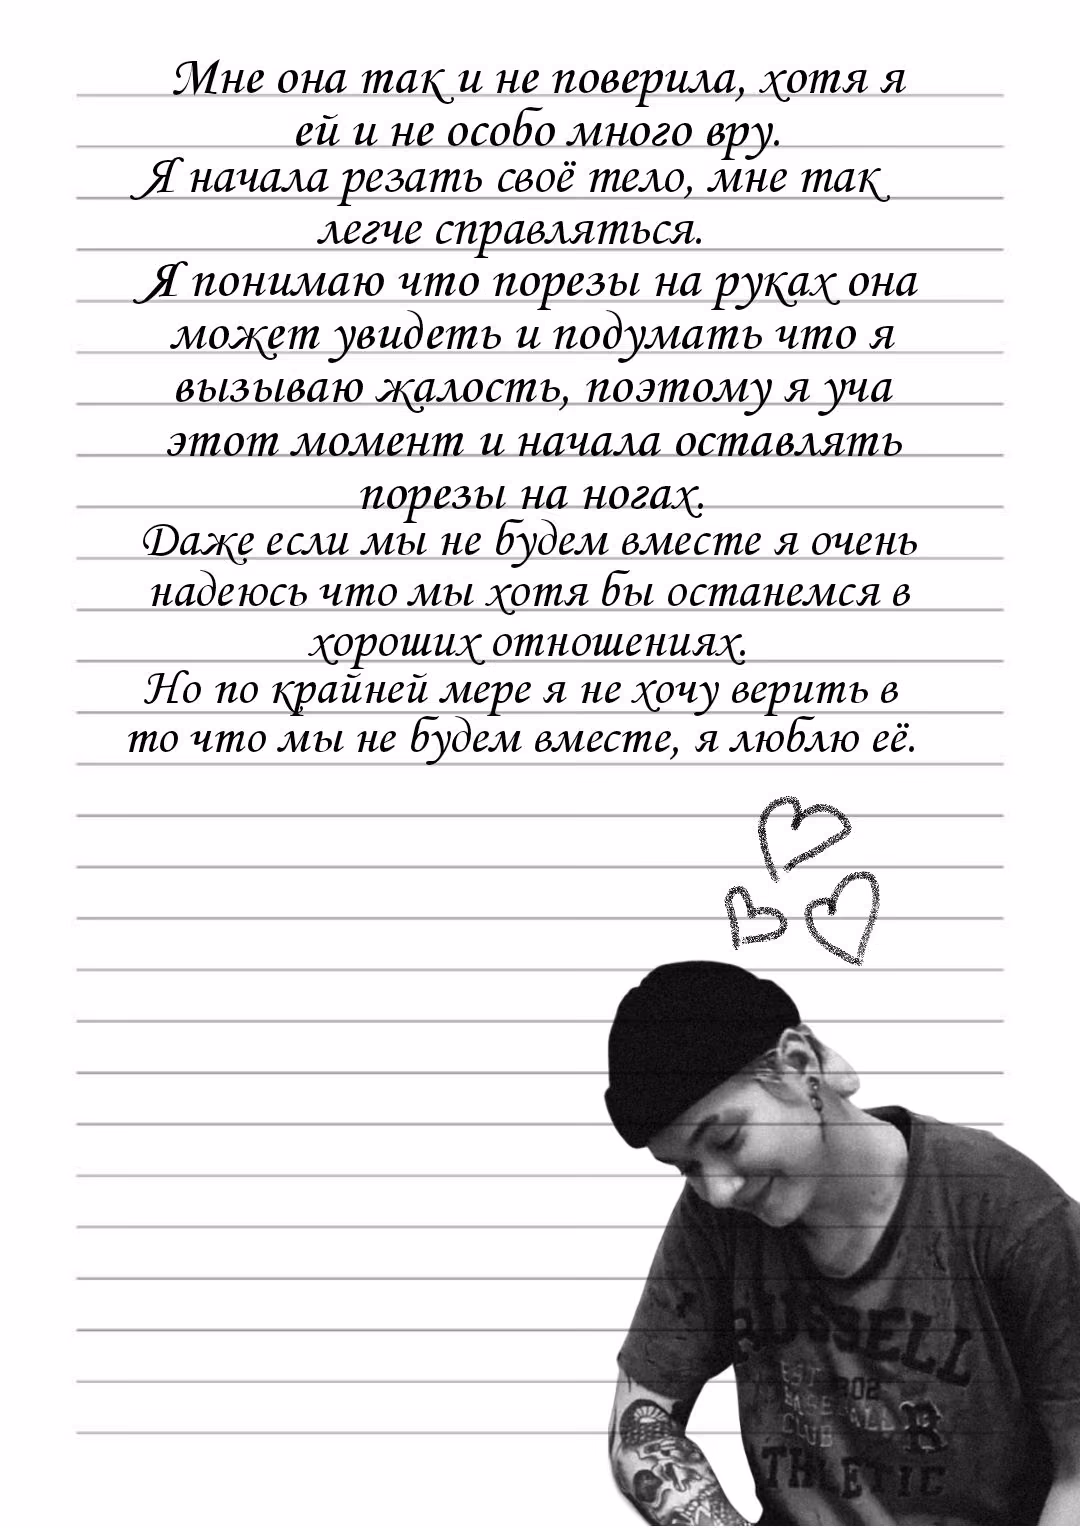 Мне она так и не поверила, хотя я
ей и не особо много вру.
Я начала резать своё тело, мне так
легче справляться.
Я понимаю что порезы на руках она
может увидеть и подумать что я
вызываю жалость, поэтому я уча
этот момент и начала оставлять
порезы на ногах.
Даже если мы не будем вместе я очень
надеюсь что мы хотя бы останемся в
хороших отношениях.
Но по крайней мере я не хочу верить в
то что мы не будем вместе, я люблю её.
RUSSELL
EST 1902
BASEBALL
CLUB
R
ATHLETIC